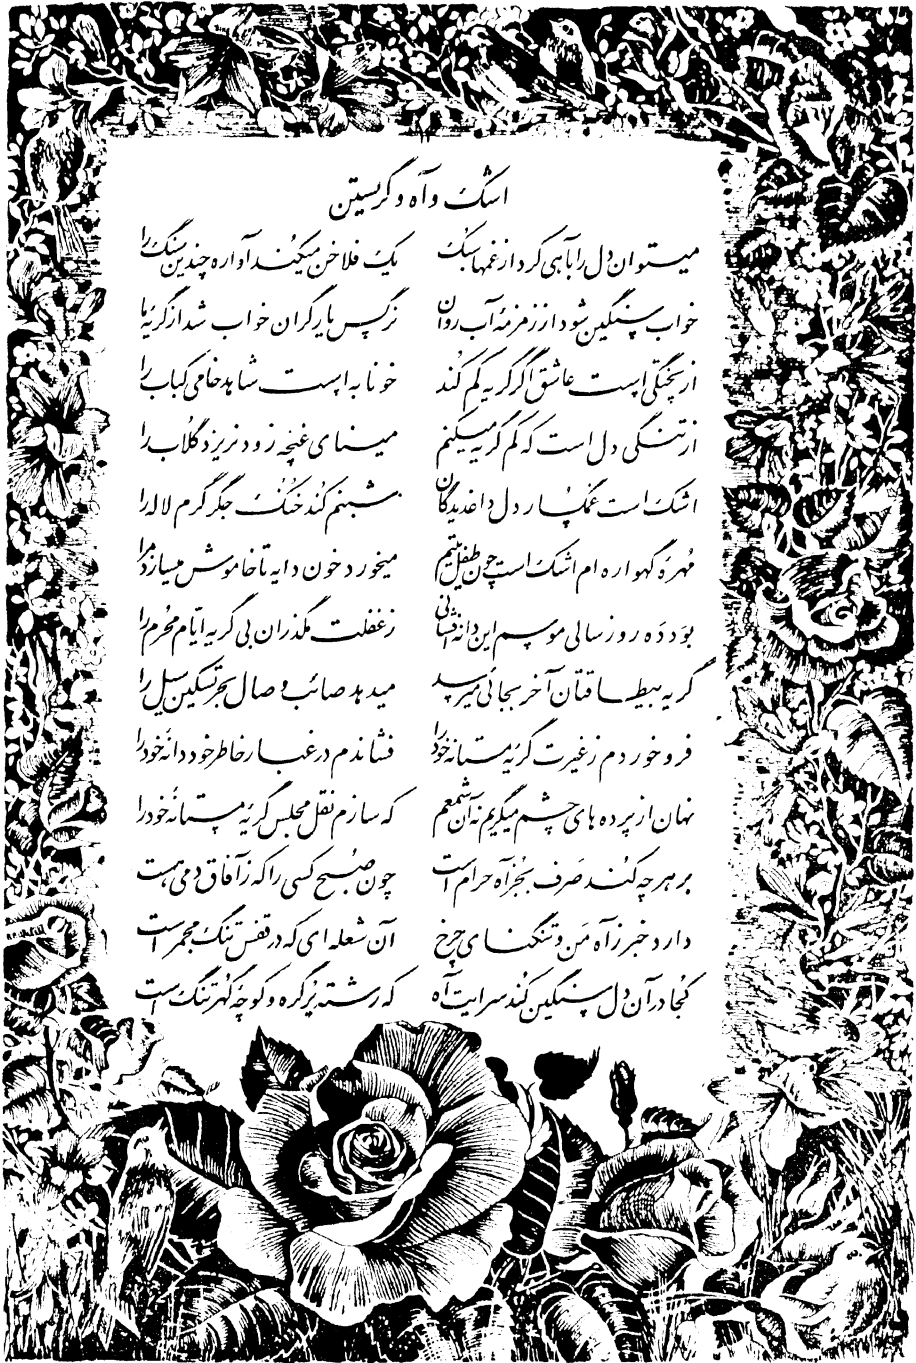 اشک و آه و گریستن
میتوان دل را بآهی کرد از غمها سبک    یک فلاخن میکند آواره چندین سنگ را
خواب سنگین شود از زمزمهٔ آب روان    نرگس یار گران خواب شد از گریهٔ ما
از پختگی است عاشق اگر گریه کم کند    خونابه است شاهد خامی کباب را
از تنگی دل است که کم گریه میکنم    مینای غنچه زود نریزد گلاب را
اشک است غمگسار دل داغدیدگان    شبنم کند خنک جگر گرم لاله را
مهرهٔ گهواره ام اشک است چون طفل یتیم    میخورد خون دایه تا خاموش میسازد مرا
بود ده روز سالی موسم این دانه افشانی    ز غفلت مگذران بی گریه ایام محرم را
گریه بیطاقتان آخر بجائی میرسد    میدهد صائب وصال بحر تسکین سیل را
فرو خوردم ز غیرت گریهٔ مستانهٔ خود را    فشاندم در غبار خاطر خود دانهٔ خود را
نهان از پرده های چشم میگریم نه آن شمعم    که سازم نقل مجلس گریهٔ مستانهٔ خود را
بر هر چه کند صرف بجز آه حرام است    چون صبح کسی را که ز آفاق دمی هست
دارد خبر ز آه من و تنگنای چرخ    آن شعله ای که در قفس تنگ مجمر است
کجا در آن دل سنگین کند سرایت آه    که رشته پر گره و کوچهٔ گهر تنگ است